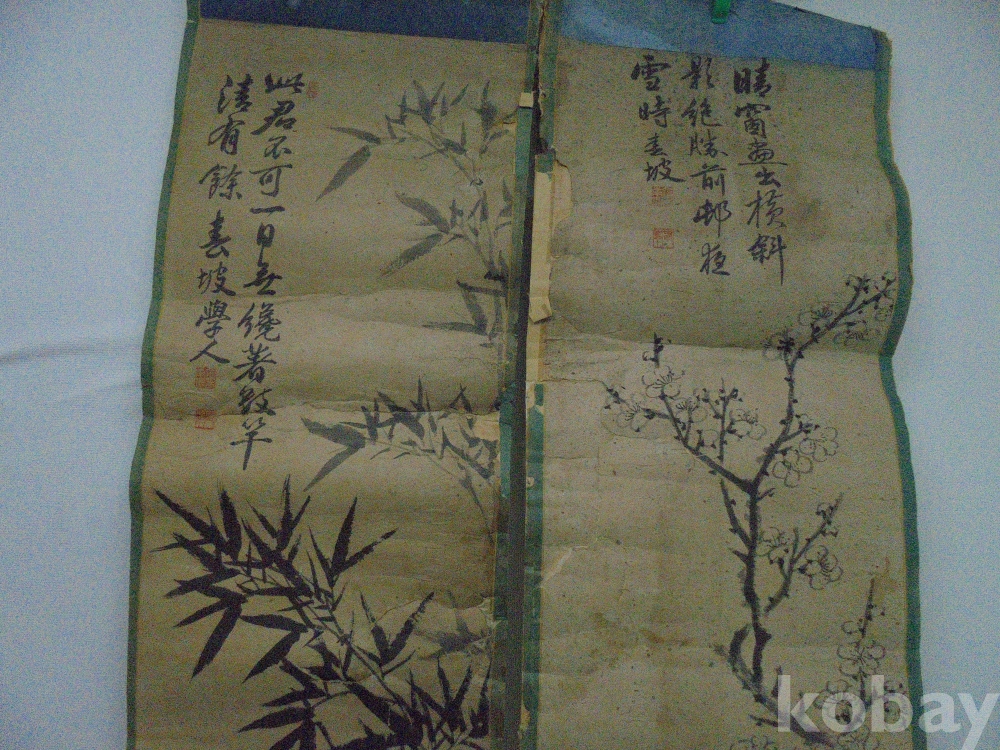 晴窗畫出橫斜
影絶勝前邨夜
雪時 春坡
此君不可一日無纔著數竿
清有餘 春坡學人
kobay